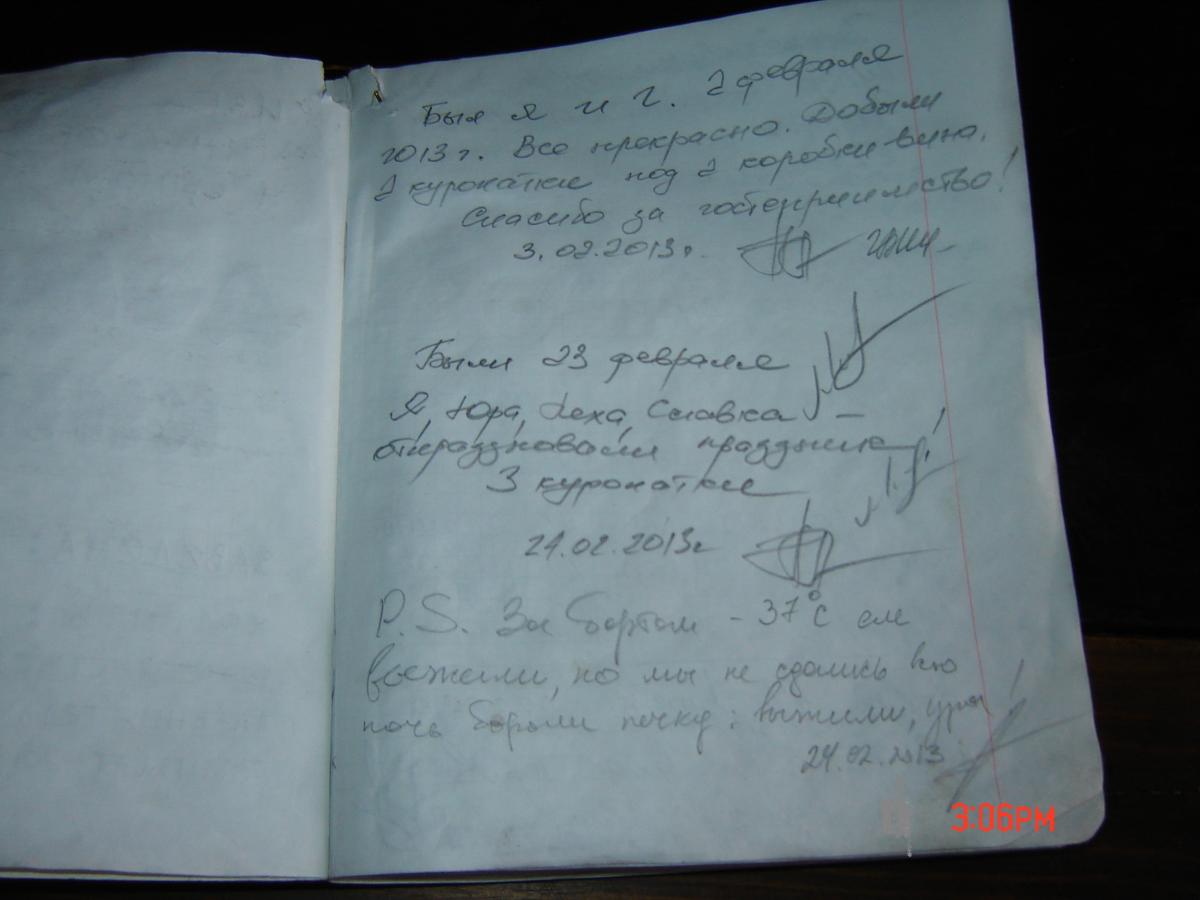 Был я и Г. 2 февраля
2013 г. Все прекрасно. Добыли
2 куропатки под 2 коробки вина.
Спасибо за гостеприимство!
3.02.2013г.
Были 23 февраля
Я, Юра, Леха, Славка –
отпраздновали праздник!
3 куропатки
24.02.2013г
P.S. За бортом - 37°C еле
выжили, но мы не сдались всю
ночь борол печку; выжили, ура!
24.02.2013
3:06PM